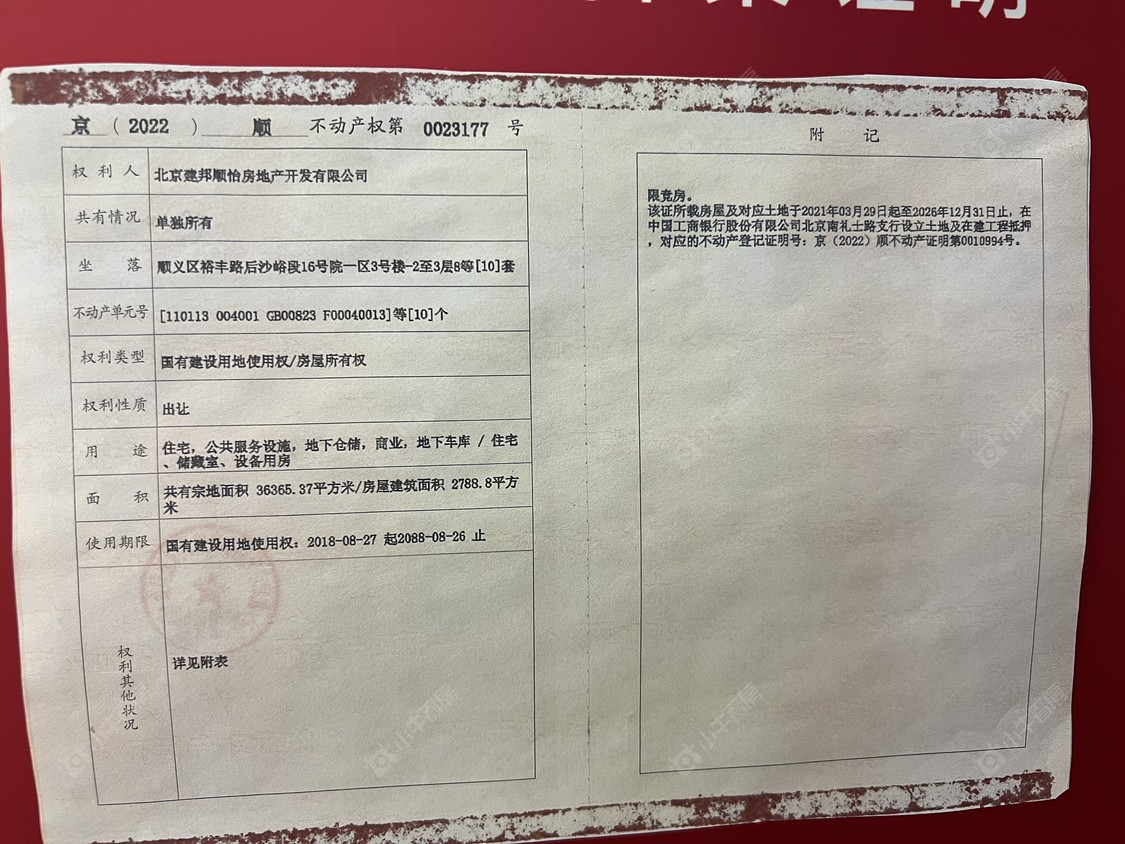 证明
京（2022）顺 不动产权第 0023177 号
权利人 北京建邦顺怡房地产开发有限公司
共有情况 单独所有
坐落 顺义区裕丰路后沙峪段16号院一区3号楼-2至3层8等[10]套
不动产单元号 [110113 004001 GB00823 F00040013]等[10]个
权利类型 国有建设用地使用权/房屋所有权
权利性质 出让
用途 住宅，公共服务设施，地下仓储，商业，地下车库 / 住宅
、储藏室、设备用房
面积 共有宗地面积 36365.37平方米/房屋建筑面积 2788.8平方
米
使用期限 国有建设用地使用权：2018-08-27 起2088-08-26 止
权利其他状况 详见附表
附记
限竞房。
该证所载房屋及对应土地于2021年03月29日起至2026年12月31日止，在
中国工商银行股份有限公司北京南礼士路支行设立土地及在建工程抵押
，对应的不动产登记证明号：京（2022）顺不动产证明第0010994号。
小牛看房
小牛看房
小牛看房